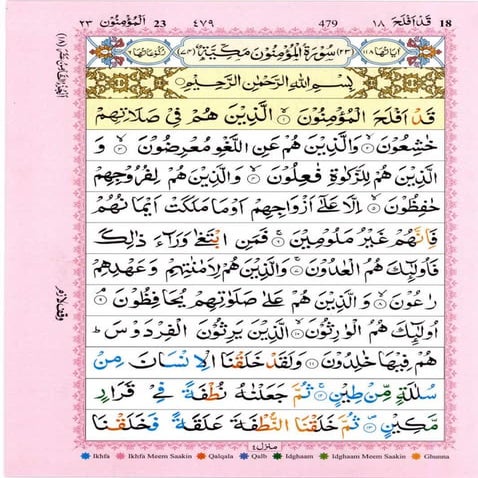 18 قَدْ اَفْلَحَ ١٨ 479 ٤٧٩ 23 اَلْمُؤْمِنُوْن ٢٣
اٰيَاتُهَا ١١٨ (٢٣) سُوْرَةُ الْمُؤْمِنُوْنَ مَكِّيَّةٌ (٧٤) رُكُوْعَاتُهَا ٦
بِسْمِ اللّٰهِ الرَّحْمٰنِ الرَّحِيْمِ
قَدْ اَفْلَحَ الْمُؤْمِنُوْنَ ۙ١ الَّذِيْنَ هُمْ فِيْ صَلَاتِهِمْ
خٰشِعُوْنَ ۙ٢ وَالَّذِيْنَ هُمْ عَنِ اللَّغْوِ مُعْرِضُوْنَ ۙ٣ وَ
الَّذِيْنَ هُمْ لِلزَّكٰوةِ فٰعِلُوْنَ ۙ٤ وَالَّذِيْنَ هُمْ لِفُرُوْجِهِمْ
حٰفِظُوْنَ ۙ٥ اِلَّا عَلٰٓى اَزْوَاجِهِمْ اَوْ مَا مَلَكَتْ اَيْمَانُهُمْ
فَاِنَّهُمْ غَيْرُ مَلُوْمِيْنَ ۚ٦ فَمَنِ ابْتَغٰى وَرَآءَ ذٰلِكَ
فَاُولٰٓئِكَ هُمُ الْعٰدُوْنَ ۚ٧ وَالَّذِيْنَ هُمْ لِاَمٰنٰتِهِمْ وَعَهْدِهِمْ
رَاعُوْنَ ۙ٨ وَ الَّذِيْنَ هُمْ عَلٰى صَلَوٰتِهِمْ يُحَافِظُوْنَ ۘ٩
اُولٰٓئِكَ هُمُ الْوٰرِثُوْنَ ۙ١٠ الَّذِيْنَ يَرِثُوْنَ الْفِرْدَوْسَ ؕ
هُمْ فِيْهَا خٰلِدُوْنَ ١١ وَلَقَدْ خَلَقْنَا الْاِنْسَانَ مِنْ
سُلٰلَةٍ مِّنْ طِيْنٍ ۚ١٢ ثُمَّ جَعَلْنٰهُ نُطْفَةً فِيْ قَرَارٍ
مَّكِيْنٍ ۪١٣ ثُمَّ خَلَقْنَا النُّطْفَةَ عَلَقَةً فَخَلَقْنَا
منزل ٤
وقف لازم
Ikhfa Ikhfa Meem Saakin Qalqala Qalb Idghaam Idghaam Meem Saakin Ghunna